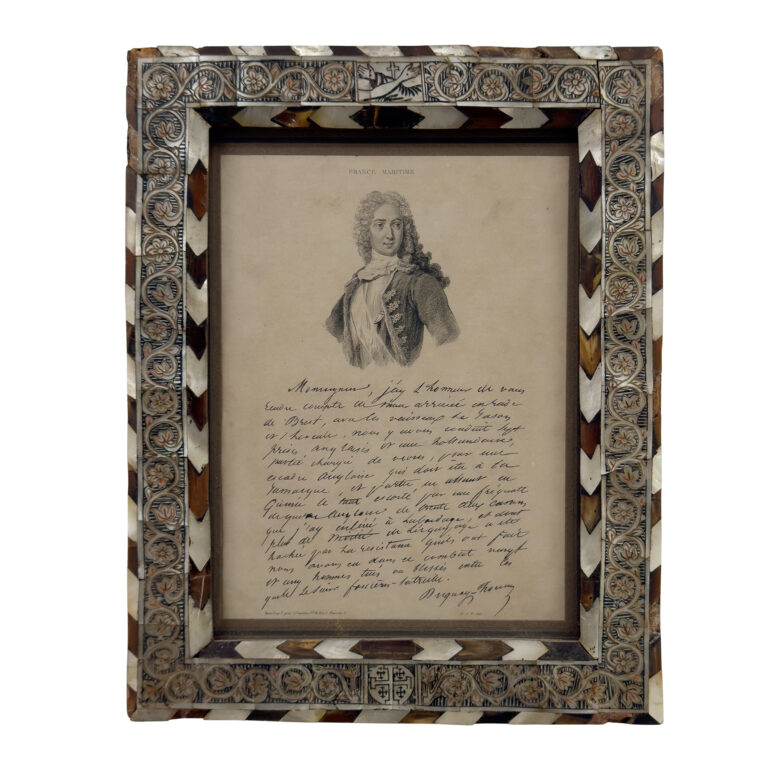 FRANCE MARITIME
Monseigneur, j'ay l'honneur de vous
rendre compte de mon arrivée en rade
de Brest, avec les vaisseaux le Jason
et l'hercule, nous y avons conduit sept
prises anglaises et une hollandaise,
partie chargée de vivres, pour une
escadre angloise qui doit etre à la
Jamaique, et partie en allant en
Guinée le tout escorté par une frégatte
de guerre angloise de trente deux canons,
que j'ay enlevée à l'abordage, et dont
plus de moitié de l'equipage a été
hachée par la resistance qu'ils ont fait
nous avons eu dans ce combat
et cinq hommes tués ou blessés entre les
quels le sieur
Duguay-Trouin